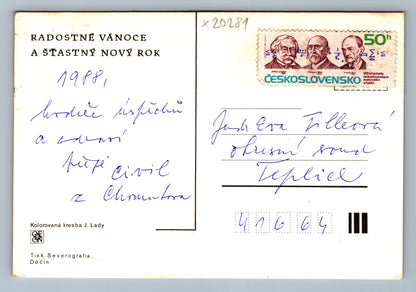 RADOSTNÉ VÁNOCE
A ŠŤASTNÝ NOVÝ ROK
x 20281
50h
ČESKOSLOVENSKO
1988,
hodně úspěchů
a zdraví
přeje Civil
z Chomutova
JUDr Eva
okresní soud
Teplice
416 64
Kolorovaná kresba J. Lady
Tisk Severografia
Děčín